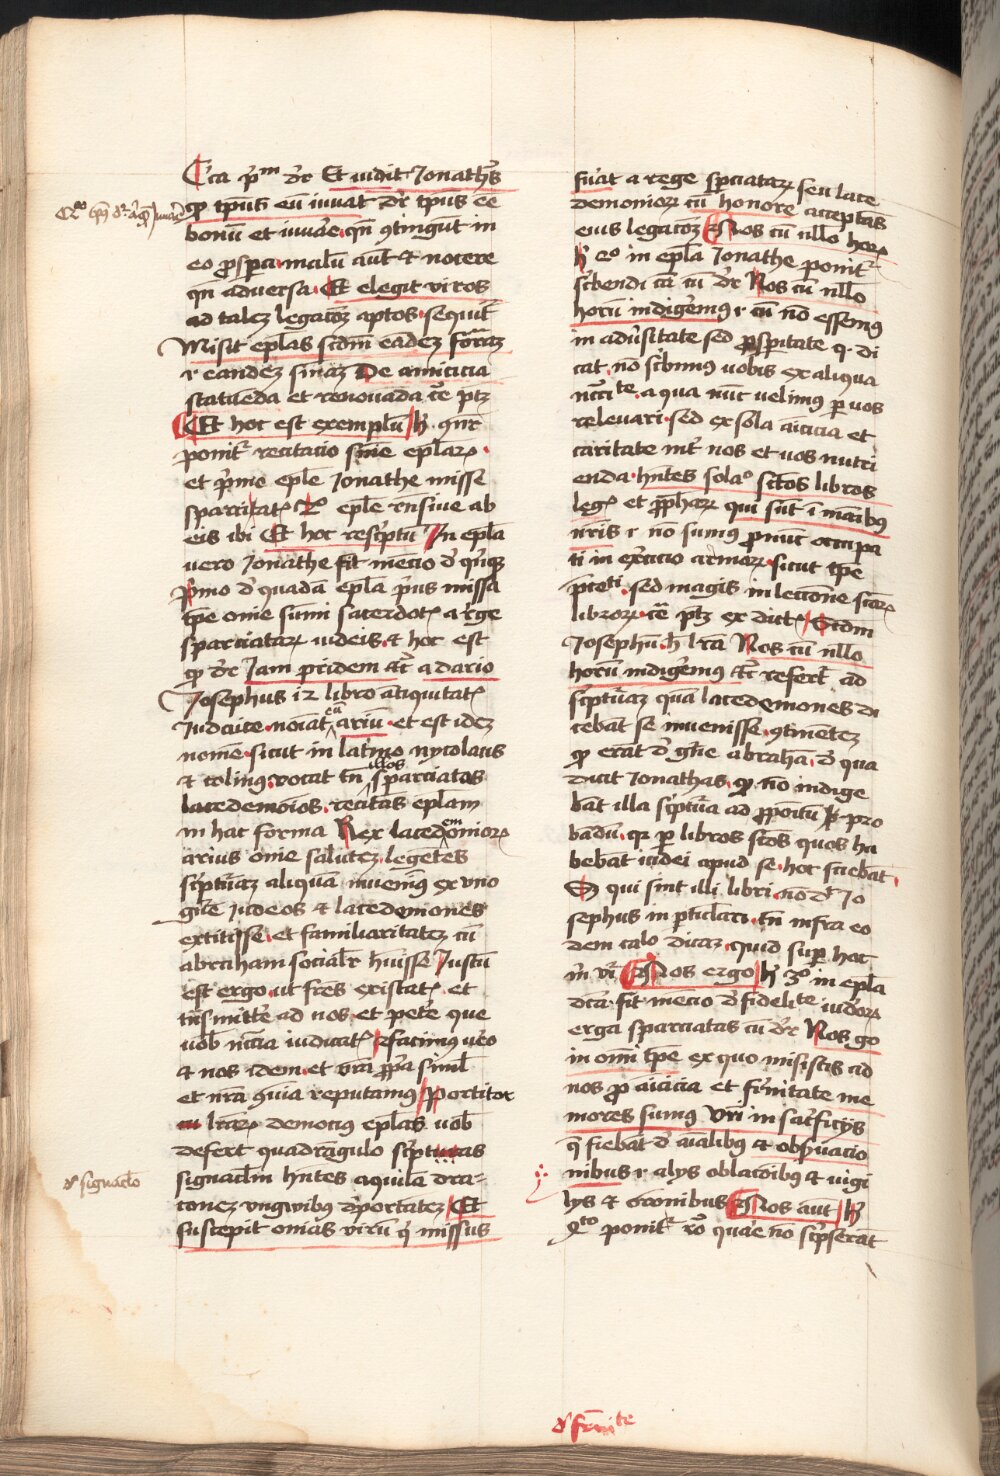 Cca pm dr Et vidit Jonathas
qp tpus eu iuuat dr tpus ee
bonu et iuuare qn gtingut in
eo prospera malu aut et nocere
qn adversa Et elegit viros
ad talez legatoz aptos sequit
Misit eplas scdm eadez formaz
r eandez sniaz De amicicia
statuenda et renovada ce ptz
Et hoc est exemplu h qnr
ponit recitatio sme eplar
et pmo eple Jonathe misse
sparciatar eple rnsive ab
eis ibi Et hoc rescptu In epla
vero Jonathe fit mecio d
pmo d quada epla prius missa
tpe onie sumi sacerdot a rege
sparciatar iudeis et hoc est
qp dr Jam pridem et a dario
Josephus 12 libro atiquitat
Judaice noiat eu ariu et est idez
nome sicut in latino nycolaus
et colinus vocat tn illos sparciatas
lacedemoios recitas eplam
in hac forma Rex lacedemonior
arius onie salutez legentes
scpturaz aliqua invenimus ex vno
gne Judeos et lacedemones
extitisse et familiaritatez cu
abraham socialr huisse Justu
est ergo ut fres existat et
tns mitte ad nos et pete que
vob ncia iudicat facimus vero
et nos idem et vra ppa simil
et nra gmia reputamus Portitor
lrar democius eplas vob
defert quadrangulo scptas
signaclm hntes aquila dra-
conez vngwibus deportatez Et
suscepit onias viru q missus
fuat a rege sparciatar seu lace
demonior cu honore acceptas
eius legatoz Nos cu nllo hor
h 2o in epla Jonathe ponit
scbendi ca cu dr Nos cu nllo
horu indigemus r cu no essemus
in adusitate sed prosperitate q di
cat no scbimus vobis ex aliqua
nccite a qua nuc velimus p vos
relevari sed ex sola aicicia et
caritate int nos et vos nutri
enda hntes sola sctos libros
leg et pphar qui sut i manibus
nris r no sumus pnunc occupa
ti in exercicio armor sicut tpe
pteti sed magis in lectione scar
libror ce ptz ex dict Scdm
Josephu h lra Nos cu nllo
horu indigemus et refert ad
scpturaz qua lacedemones di
cebat se invenisse gtinetez
qp erat d gne abraham d qua
dicit Jonathas qp no indige
bat illa scptura ad ppoitu pro
badu qr p libros scos quos ha
bebat iudei apud se hoc sciebat
qui sint illi libri no d Jo
sephus in pticlari tn infra eo
dem calo dicaz quid sup hoc
in vr Nos ergo h 3o in epla
dca fit mecio d fidelite iudeor
erga sparciatas cu dr Nos go
in omi tpe ex quo misistis ad
nos p aicicia et frnitate me
mores sumus vri in sacficijs
q fiebat d aialibus et obseruacio
nibus r alys oblacoibus et vigi
lys et oronibus Nos aut h
4to ponit ro quare no scpserat
d signaclo
d frnite